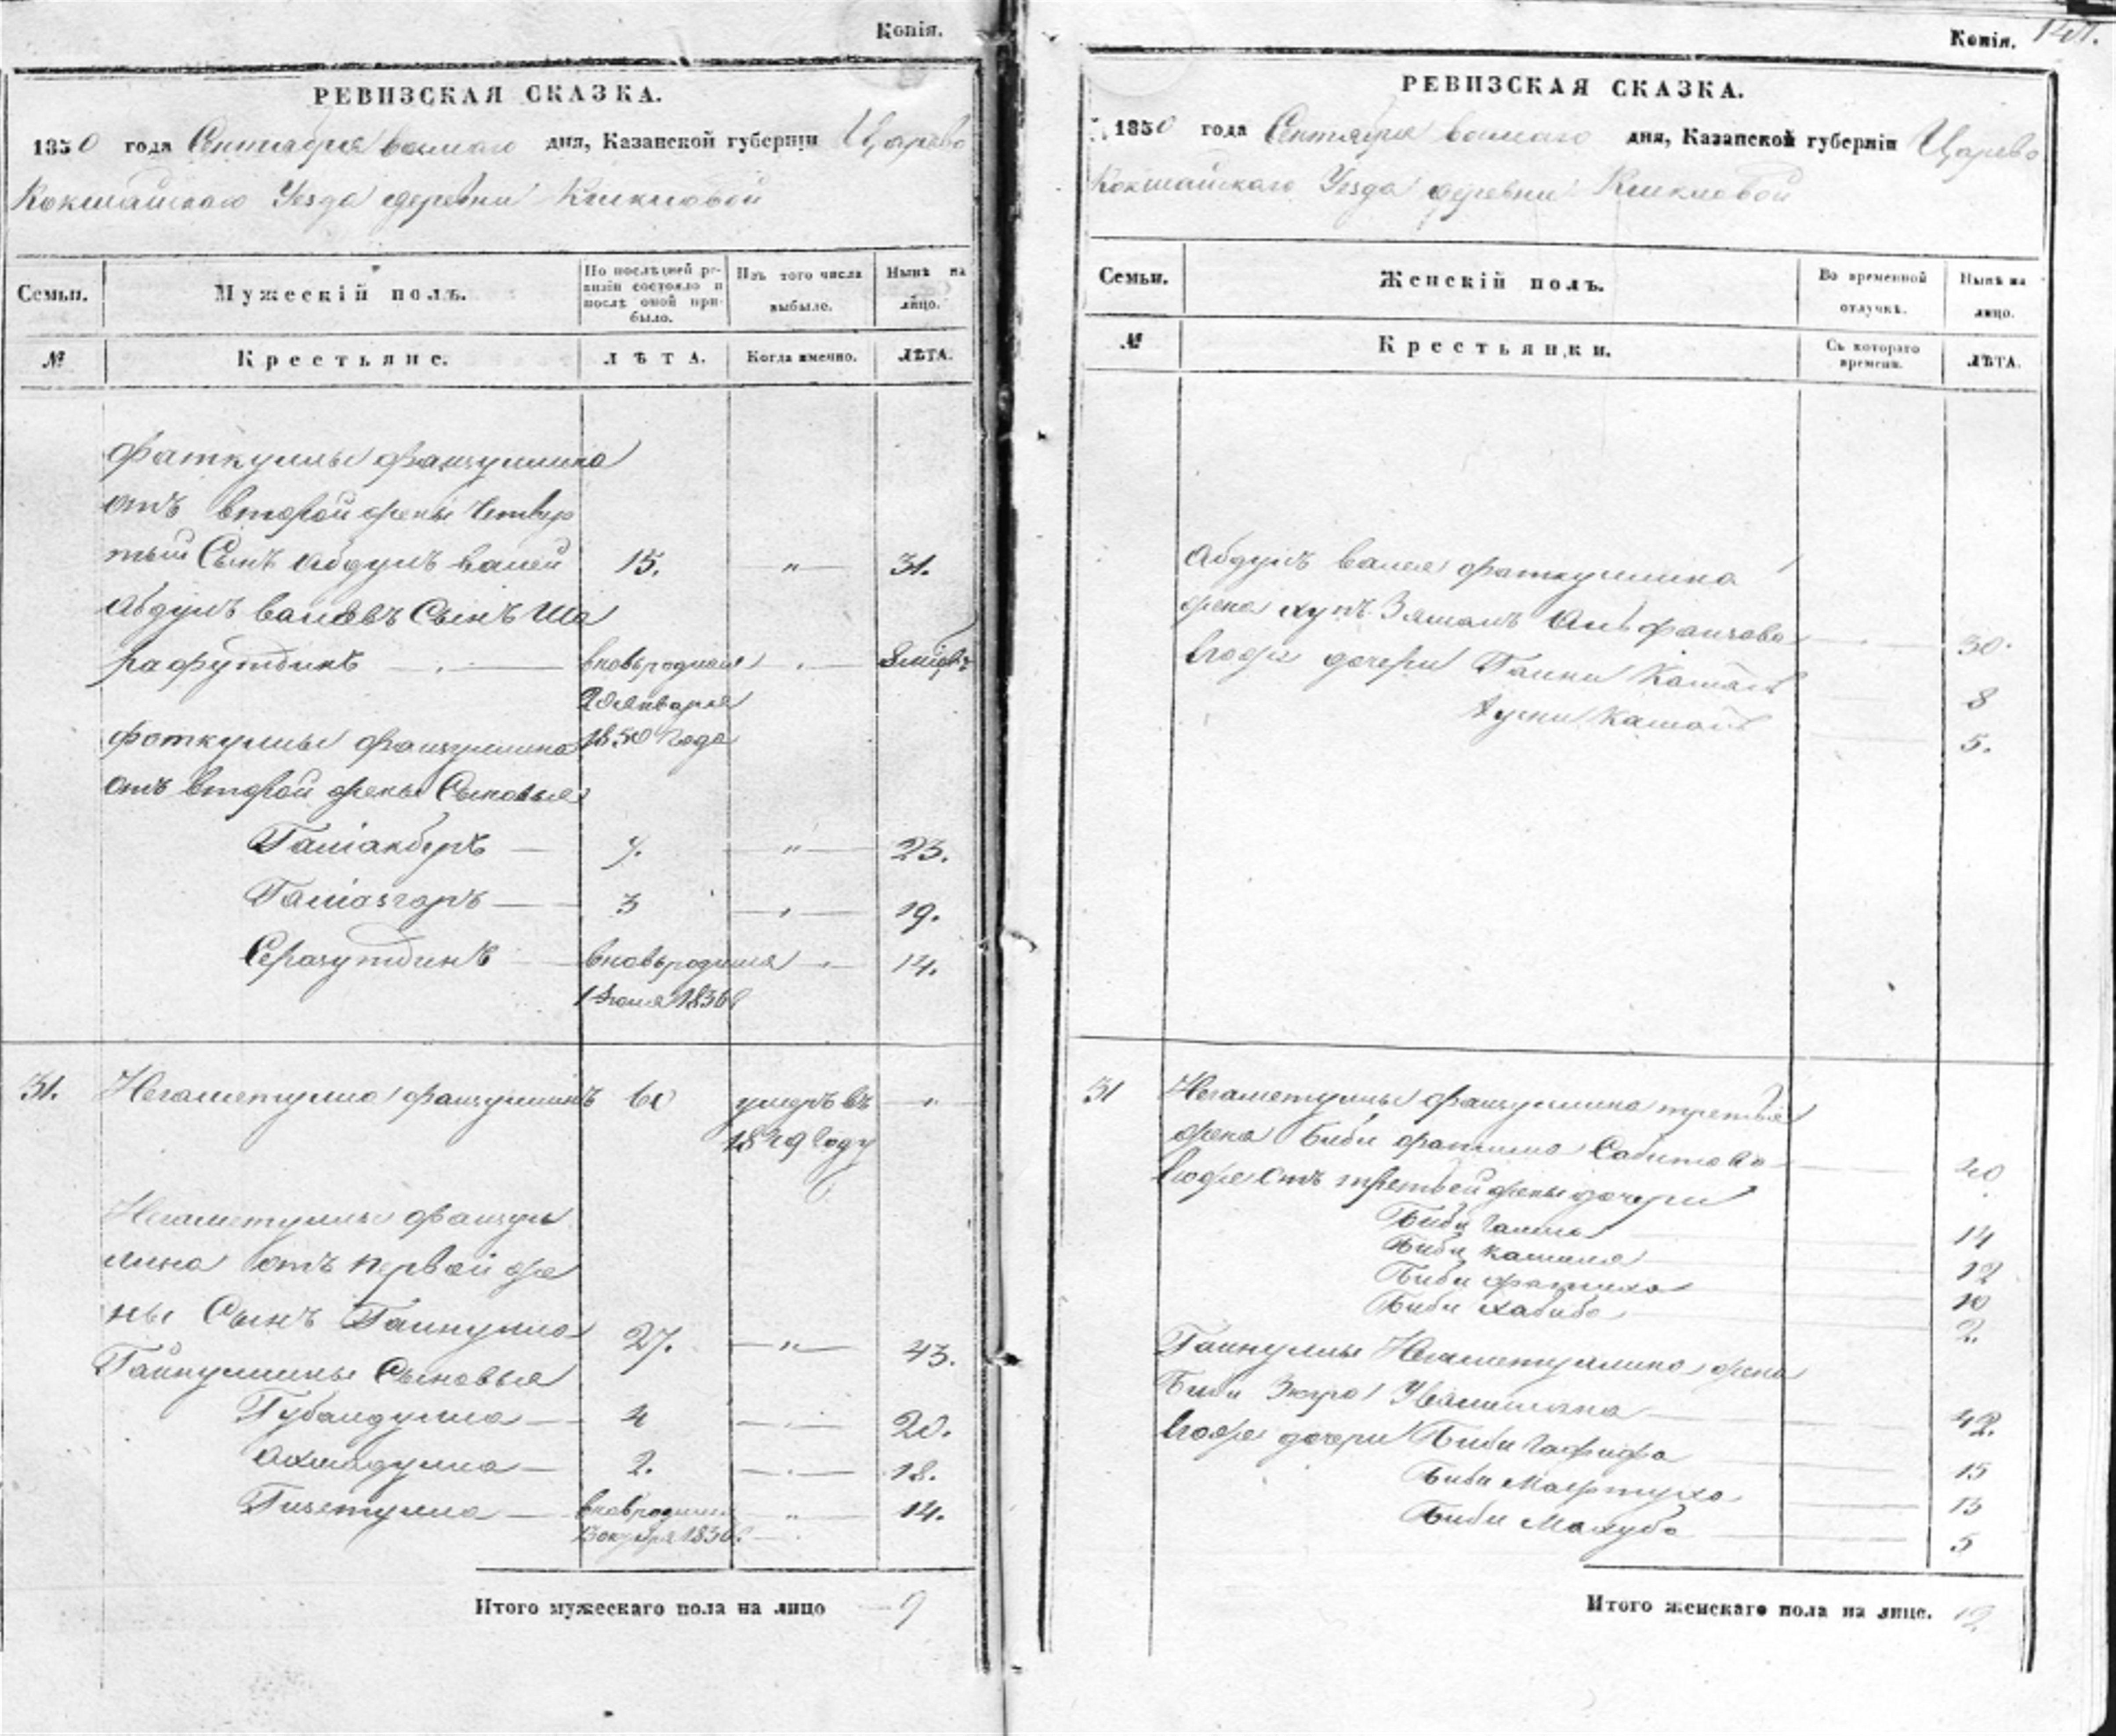 Копія.
РЕВИЗСКАЯ СКАЗКА.
1850 года Сентября восмаго дня, Казанской губерніи Царево
Кокшайскаго Уезда деревни
Семьи. Мужескій полъ. По послѣдней ревизіи состояло и послѣ оной прибыло. Изъ того числа выбыло. Нынѣ на лицо.
№ Крестьяне. ЛѢТА. Когда именно. ЛѢТА.
Фаткуллы Файзуллина
отъ второй жены Четвер
тый Сынъ Абдулъ валей 15. " 31.
Абдулъ валеевъ Сынъ Ша
рафутдинъ вновьродился
20 января
Фаткуллы Файзуллина 1850 года
отъ второй жены Сыновья
Галіакберъ 7. " 23.
Галіазгаръ 3 " 19.
Серазутдинъ вновьродился 14.
1836
31. Негаметулла Файзуллинъ 60 умеръ въ "
1849 году
Негаметуллы Файзул
лина отъ первой же
ны Сынъ Гайнулла 27. " 43.
Гайнуллины Сыновья
Губайдулла 4 " 20.
Ахмадулла 2. " 18.
Гизетулла вновьродился " 14.
1836
Итого мужескаго пола на лицо 9
Копія.
РЕВИЗСКАЯ СКАЗКА.
1850 года Сентября восмаго дня, Казанской губерніи Царево
Кокшайскаго Уезда деревни
Семьи. Женскій полъ. Во временной отлучкѣ. Нынѣ на лицо.
№ Крестьянки. Съ котораго времени. ЛѢТА.
Абдулъ валея Фаткуллина
жена 30.
Егоже дочери Камалъ 8
Камалъ 5.
31 Негаметуллы Файзуллина третья
жена Биби Фатима Сабитова 40
Егоже отъ третьей жены дочери
Биби 14
Биби Камиля 12
Биби Фатиха 10
Биби Хабиба 2.
Гайнуллы Негаметуллина жена
Биби Зюгра 42.
Егоже дочери Биби Гафифа 15
Биби Мафтуха 13
Биби Махуба 5
Итого женскаго пола на лицо. 12